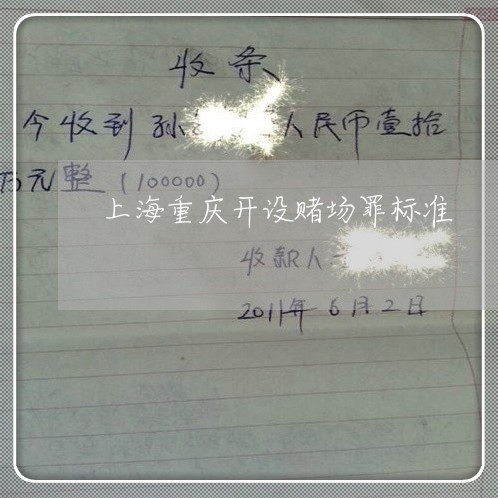 收条
今收到孙人民币壹拾
万元整（100000）
上海重庆开设赌场罪标准
收款人
2011年6月2日